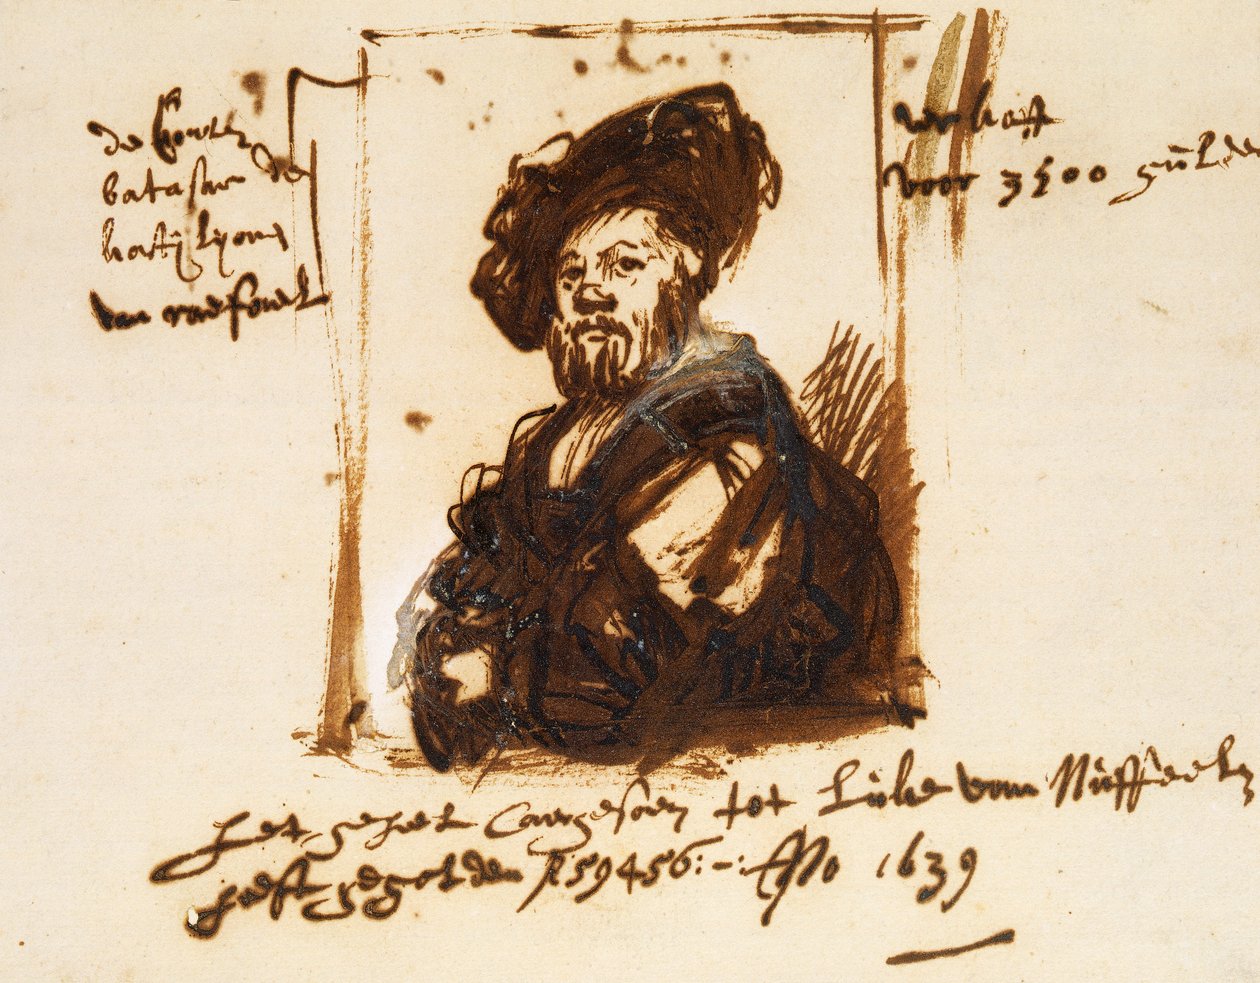 de Conte
batasar de
kastijlyone
van raefael
verkoft
voor 3500 gulde
het geheel Caergesoen tot Luke van Nuffeelen
heeft gegolden f 59456:-: Ano 1639